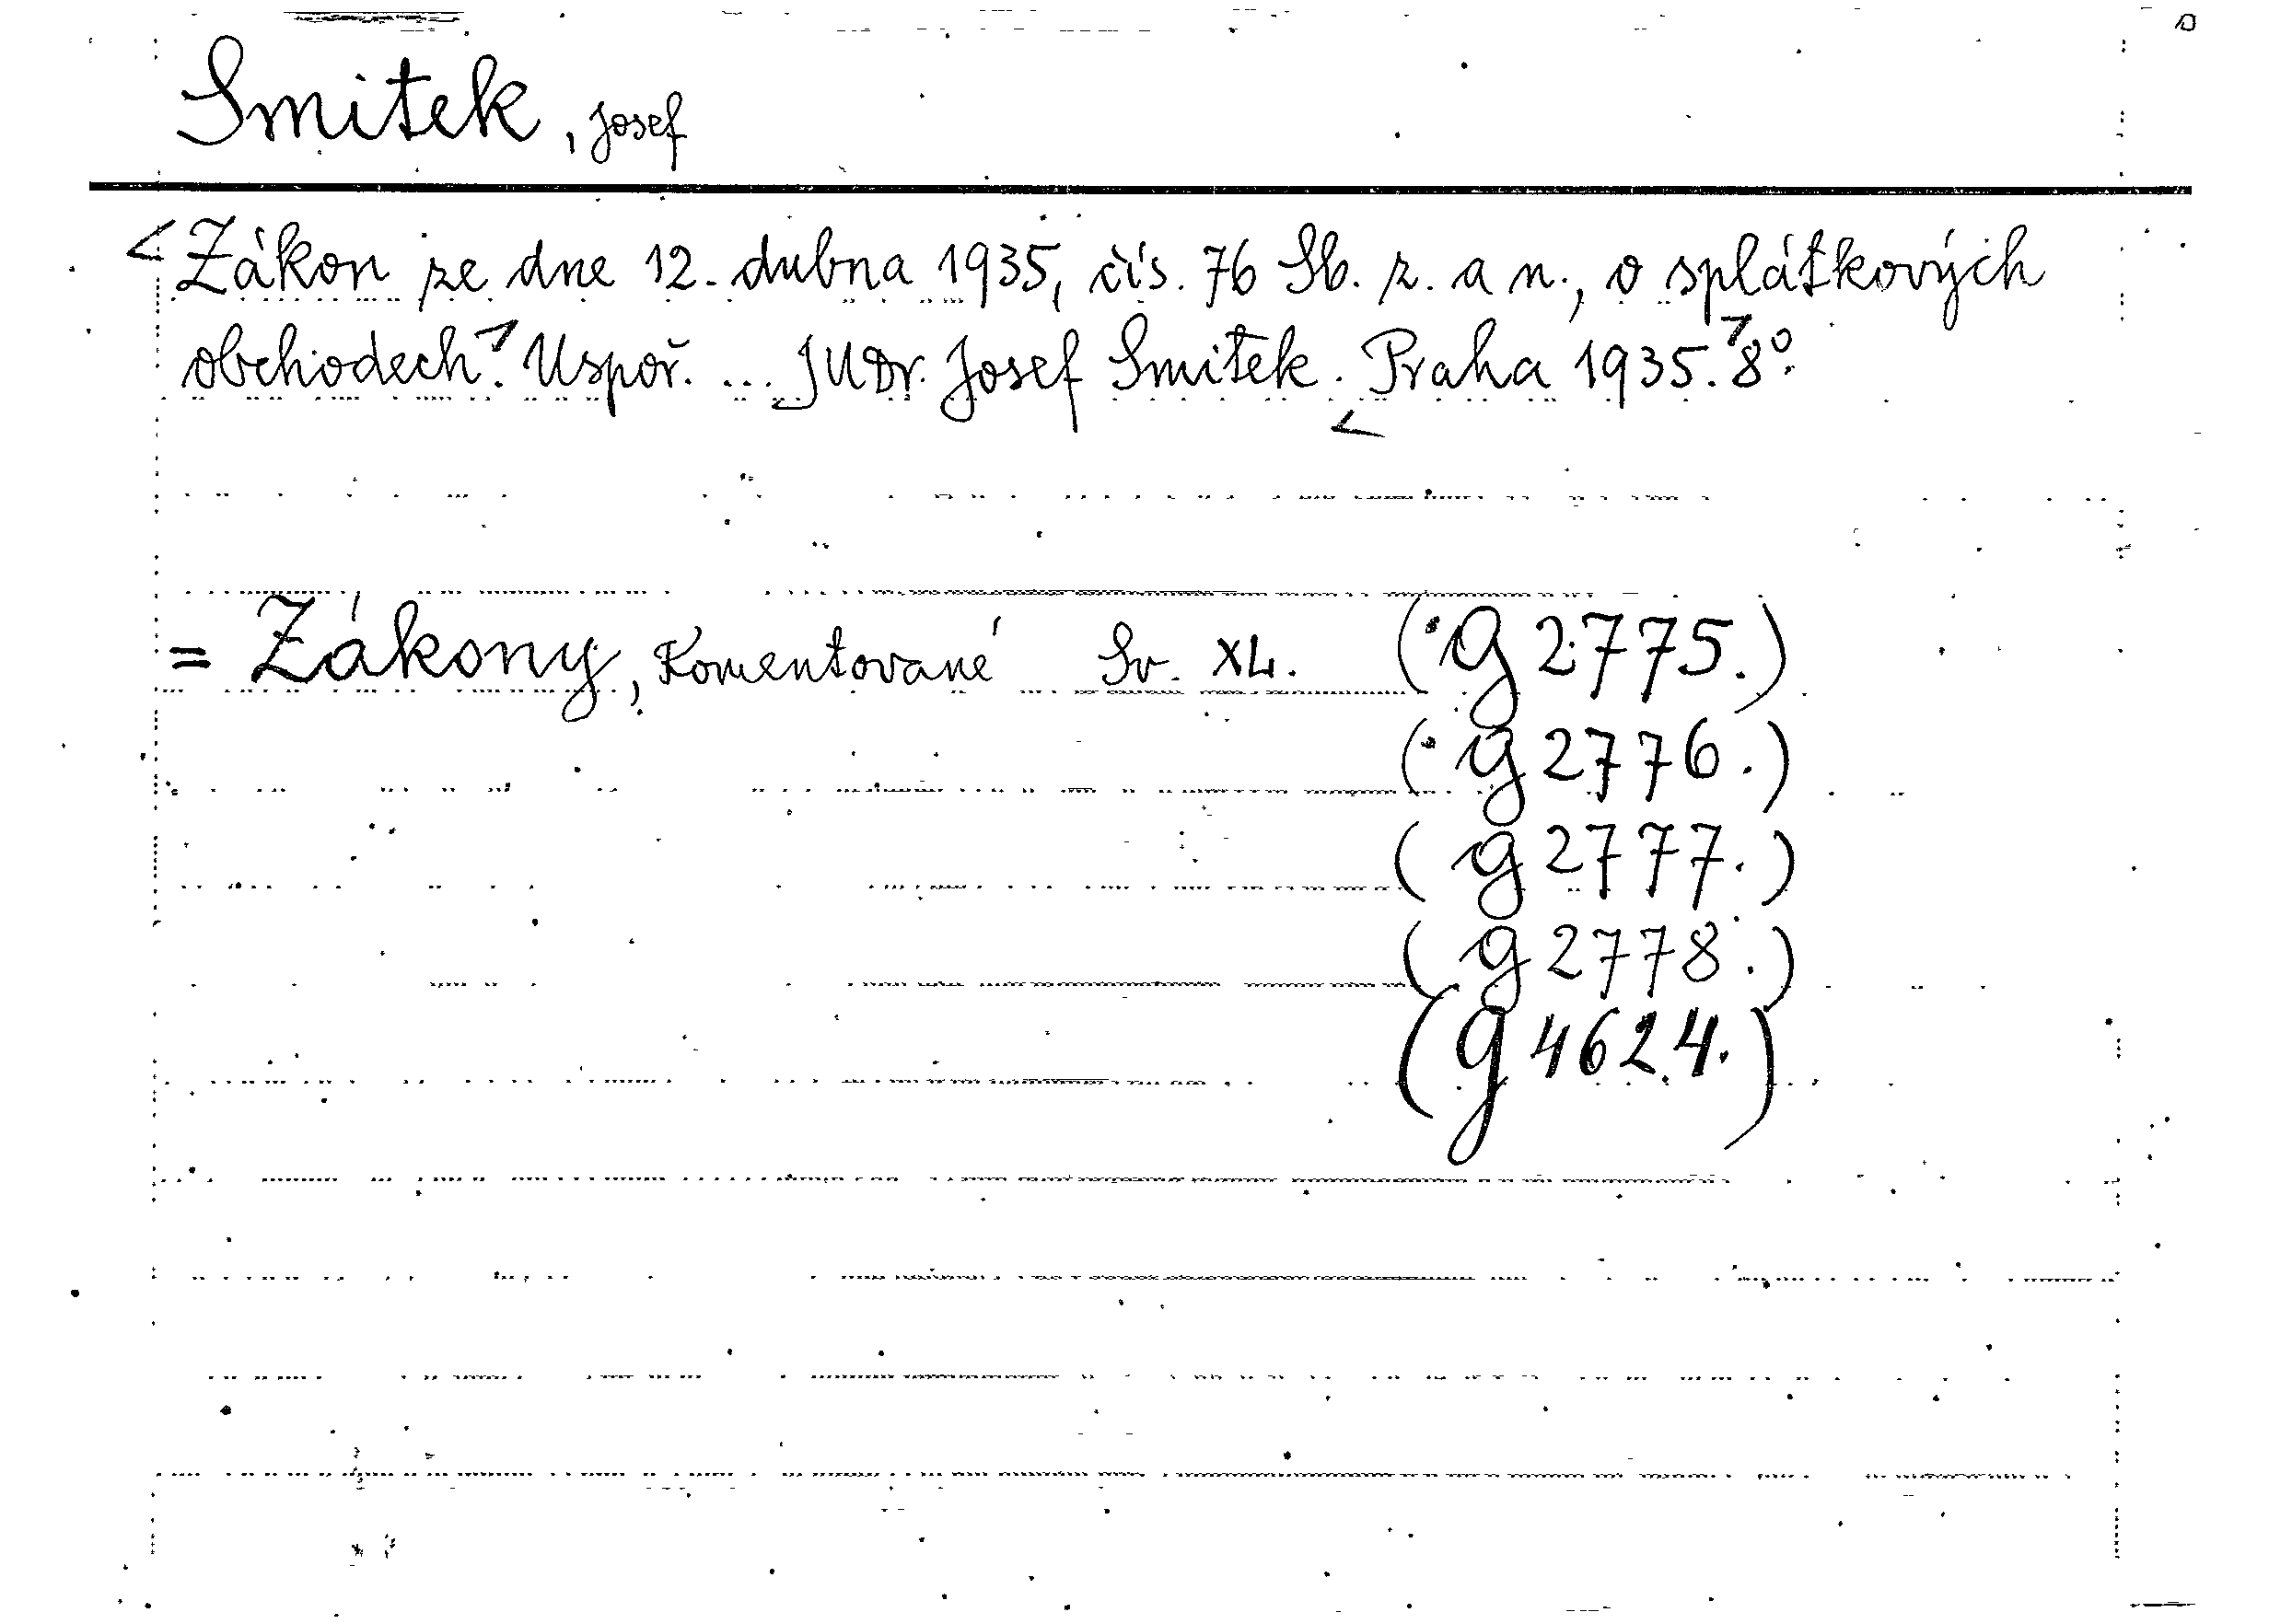 Smitek, Josef
Zákon ze dne 12. dubna 1935, čís. 76 Sb. z. a n., o splátkových
obchodech. Uspoř. ... JUDr. Josef Smitek. Praha 1935. 8°.
= Zákony, Komentované Sv. XL. (g 2775.)
(g 2776.)
(g 2777.)
(g 2778.)
(g 4624.)